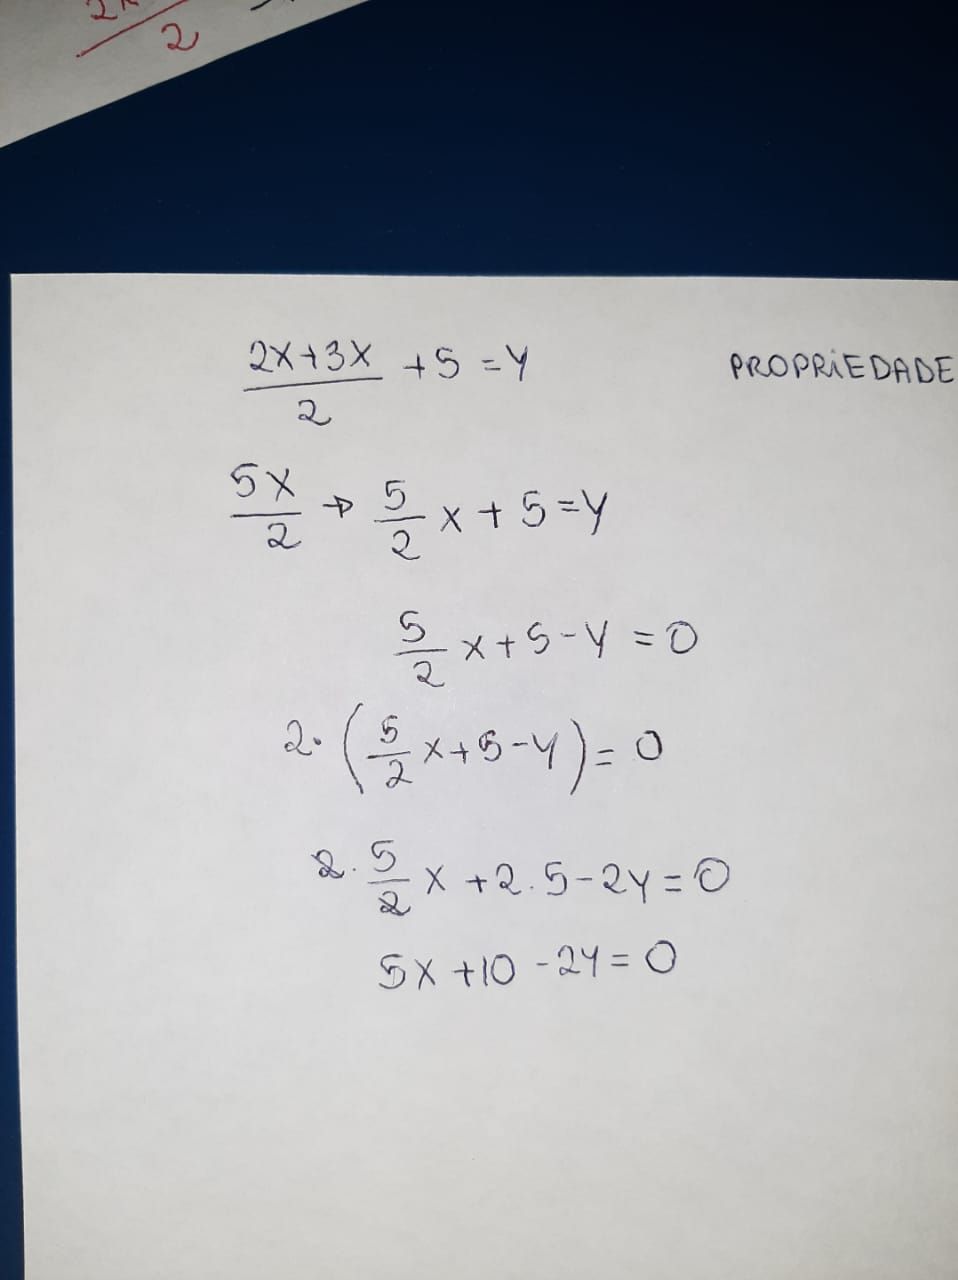 2x
2
2x+3x/2 +5 =y PROPRIEDADE
5x/2 → 5/2 x + 5=y
5/2 x+5-y = 0
2.(5/2 x+5-y)= 0
2. 5/2 x +2.5-2y=0
5x +10 -2y= 0